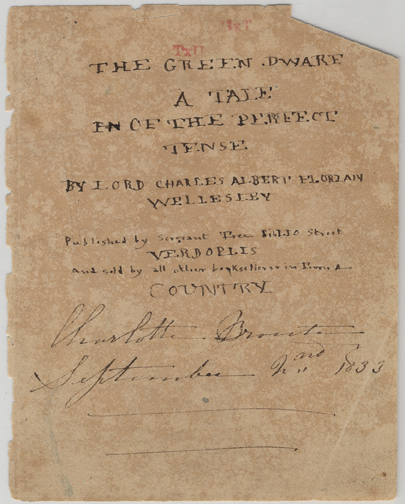 THE GREEN DWARF
A TALE
OF THE PERFECT
TENSE
BY LORD CHARLES ALBERT FLORIAN
WELLESLEY
Published by Sergeant Tree Biblio Street
VERDOPLIS
And sold by all other booksellers in
COUNTRY
Charlotte Bronte
September 2nd 1833